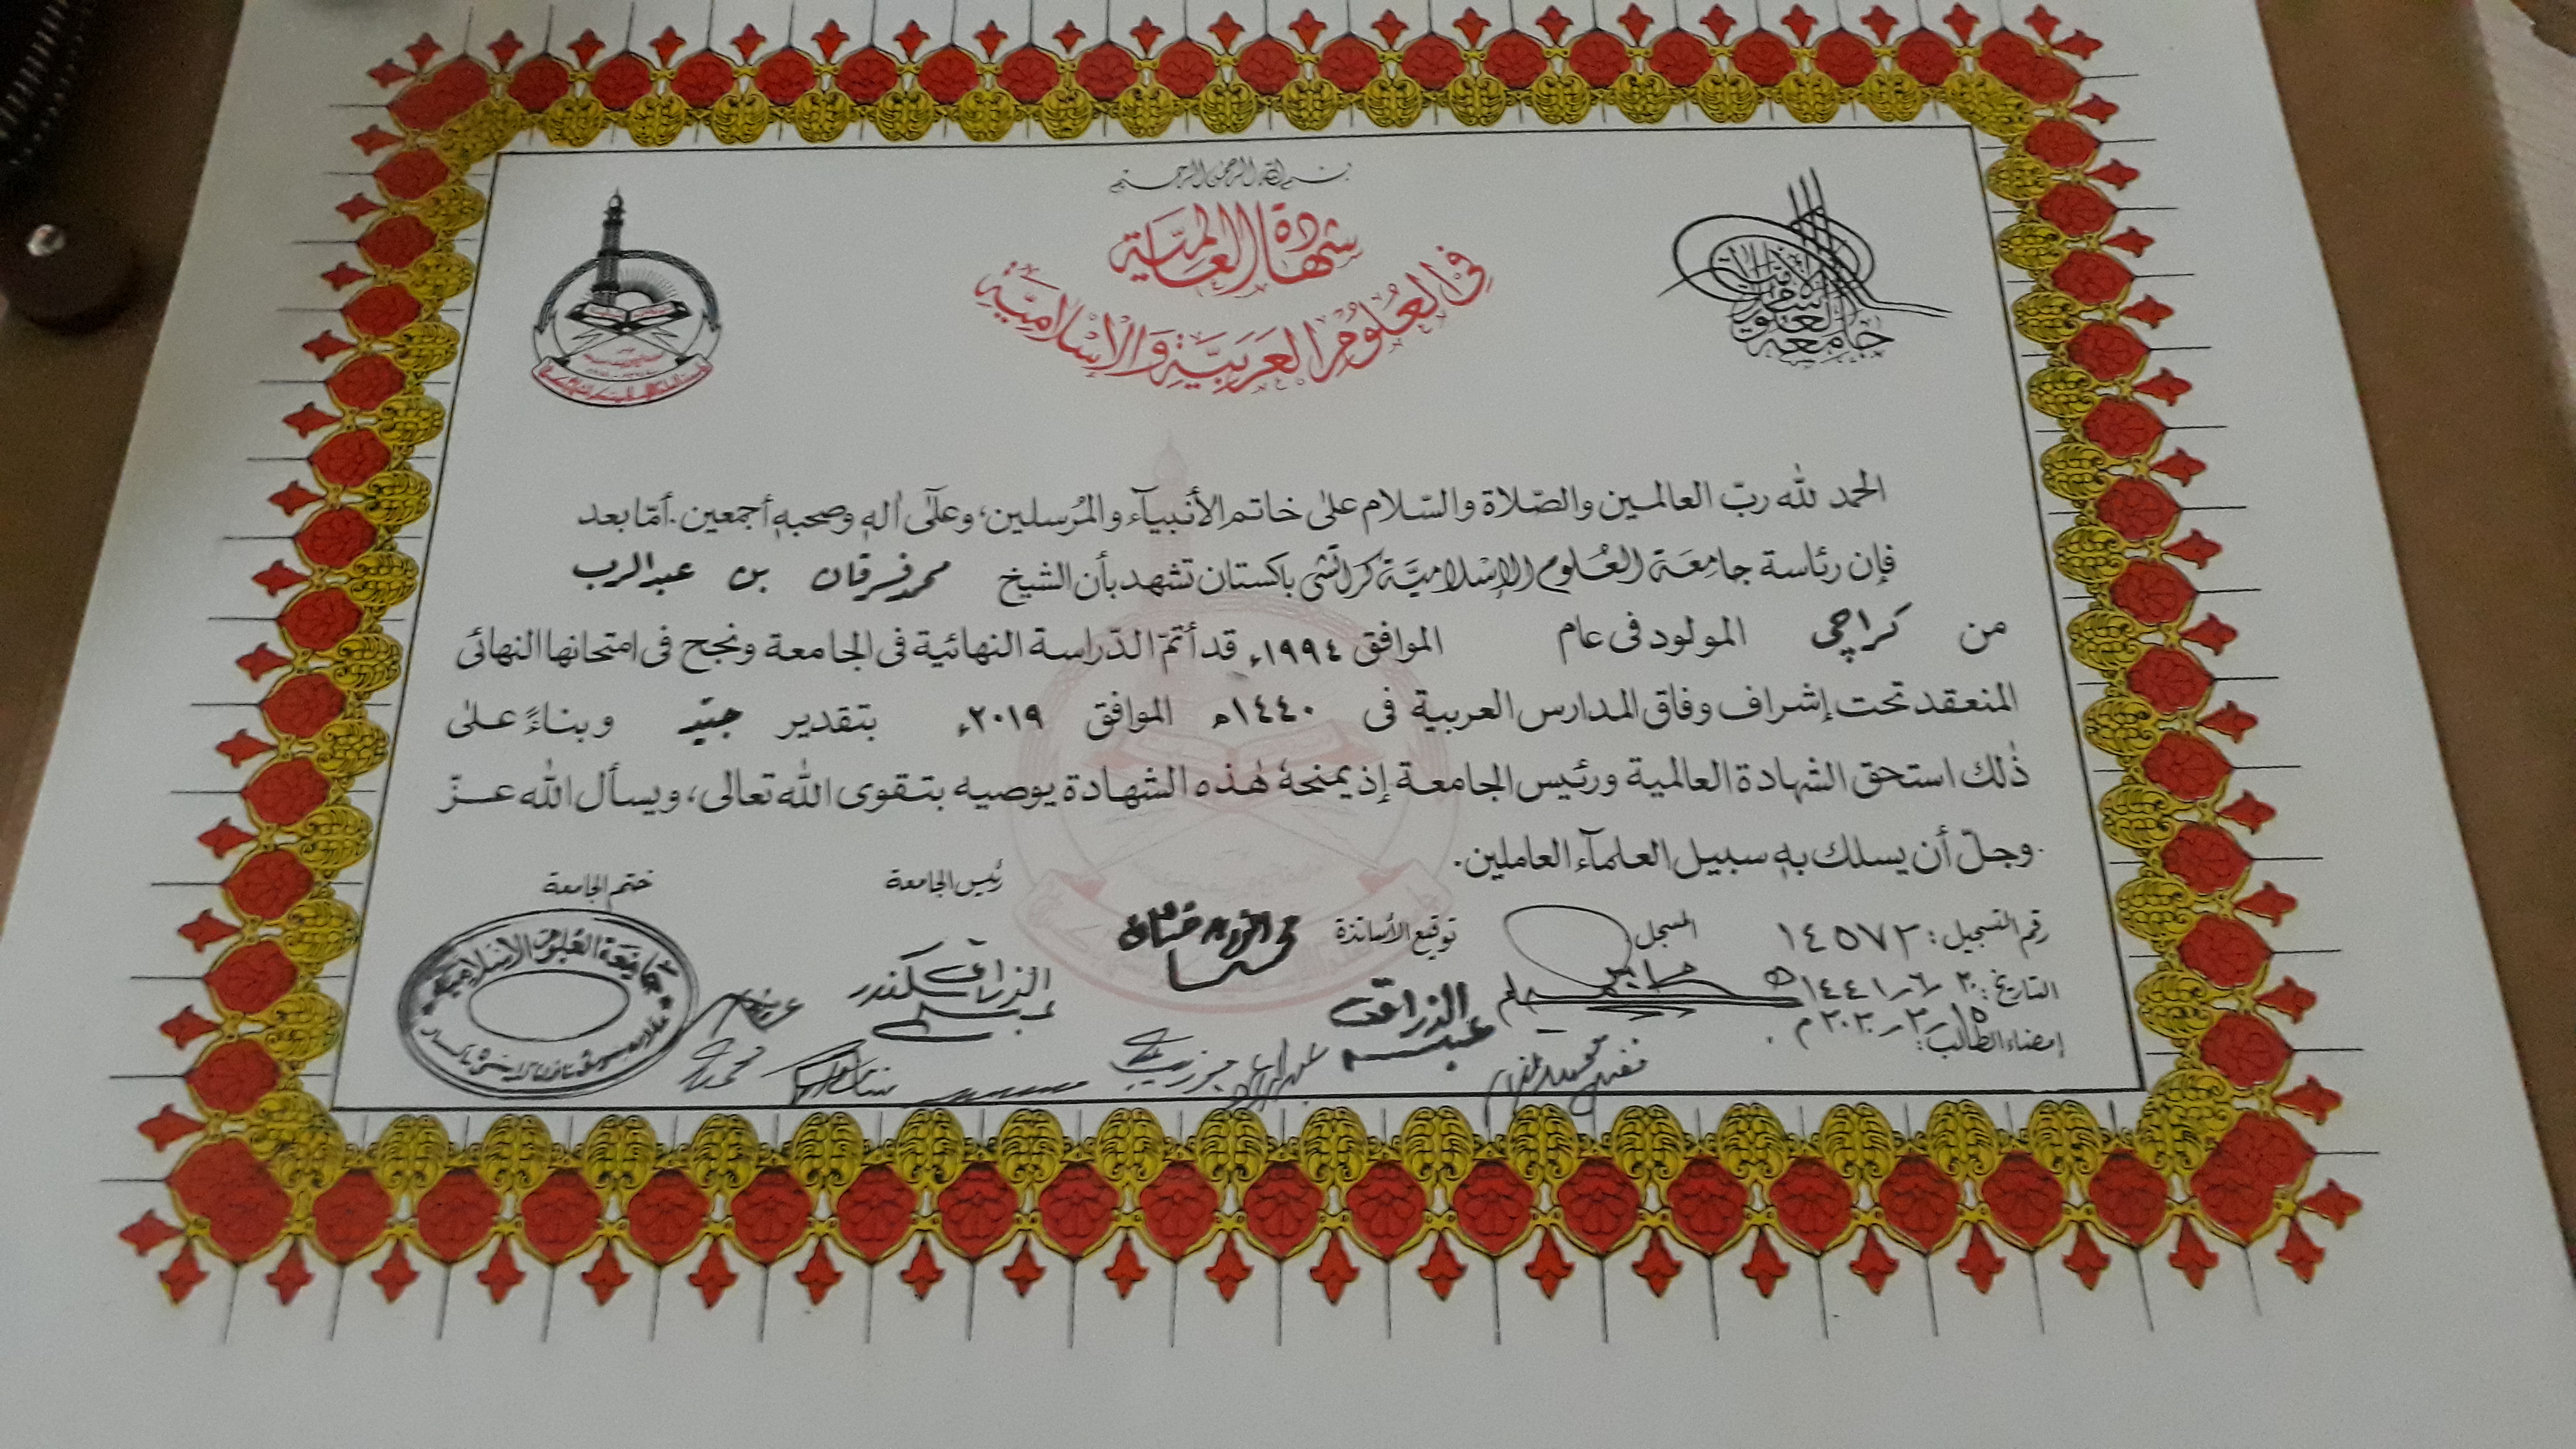 بسم الله الرحمن الرحيم
شهادة العالمية
في العُلُومِ العَرَبيَّةِ وَالإسْلَامِيَّةِ
جامعة العلوم الإسلامية
الحمد لله ربّ العالمين والصّلاة والسّلام علىٰ خاتم الأنبيآء والمُرسلين، وعلىٰ آلهٖ وصحبهٖ أجمعين. أمّا بعد
فإن رئاسة جامعَة العُلوم الإسْلاميَّة كراتشی باكستان تشهد بأن الشيخ محمد فرقان بن عبد الرب
من كراچی المولود فى عام الموافق ١٩٩٤ء قد أتمّ الدّراسة النهائية فى الجامعة ونجح فى امتحانها النهائى
المنعقد تحت إشراف وفاق المدارس العربية فى ١٤٤٠ھ الموافق ٢٠١٩ء بتقدير جيّد وبناءً علىٰ
ذٰلك استحق الشهادة العالمية ورئيس الجامعة إذ يمنحهٗ هٰذه الشهادة يوصيه بتقوى الله تعالى، ويسأل الله عزّ
وجلّ أن يسلك بهٖ سبيل العلمآء العاملين.
رقم التسجيل: ١٤٥٧٢ المسجل توقيع الأساتذة رئيس الجامعة ختم الجامعة
التاريخ:
إمضاء الطالب:
عبد الرزاق اسكندر
عبد الرزاق
جامعة العلوم الإسلامية